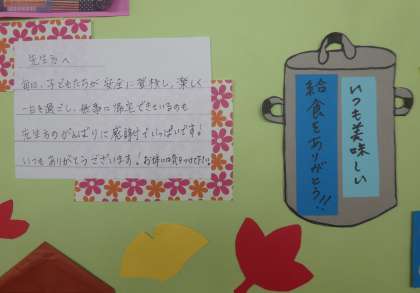 先生方へ
毎日、子どもたちが安全に登校し、楽しく
一日を過ごし、無事に帰宅できているのも
先生方のがんばりに感謝でいっぱいです！
いつもありがとうございます！お体に気をつけて下さい。
いつも美味しい
給食をありがとう!!